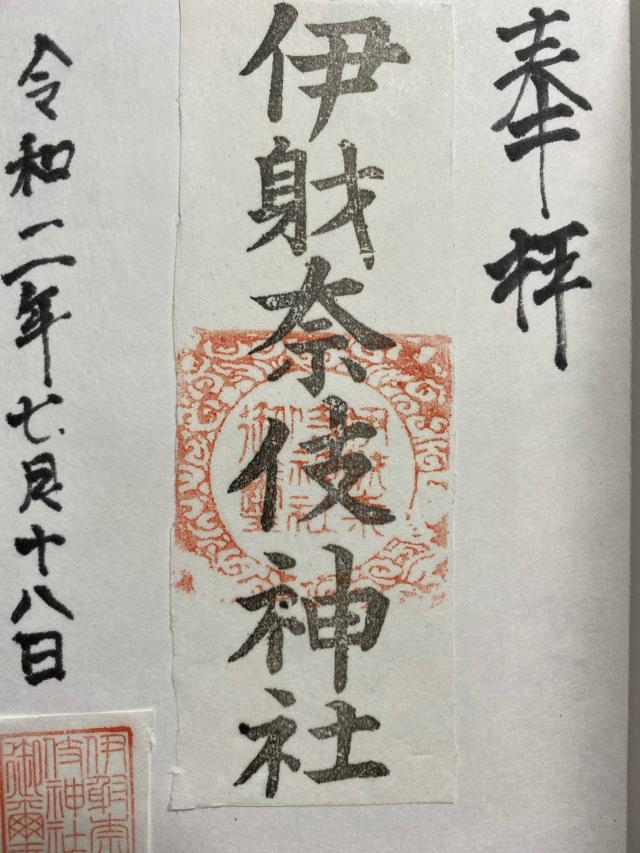 奉拝
伊射奈伎神社
令和二年七月十八日
伊射奈
伎神社
御璽